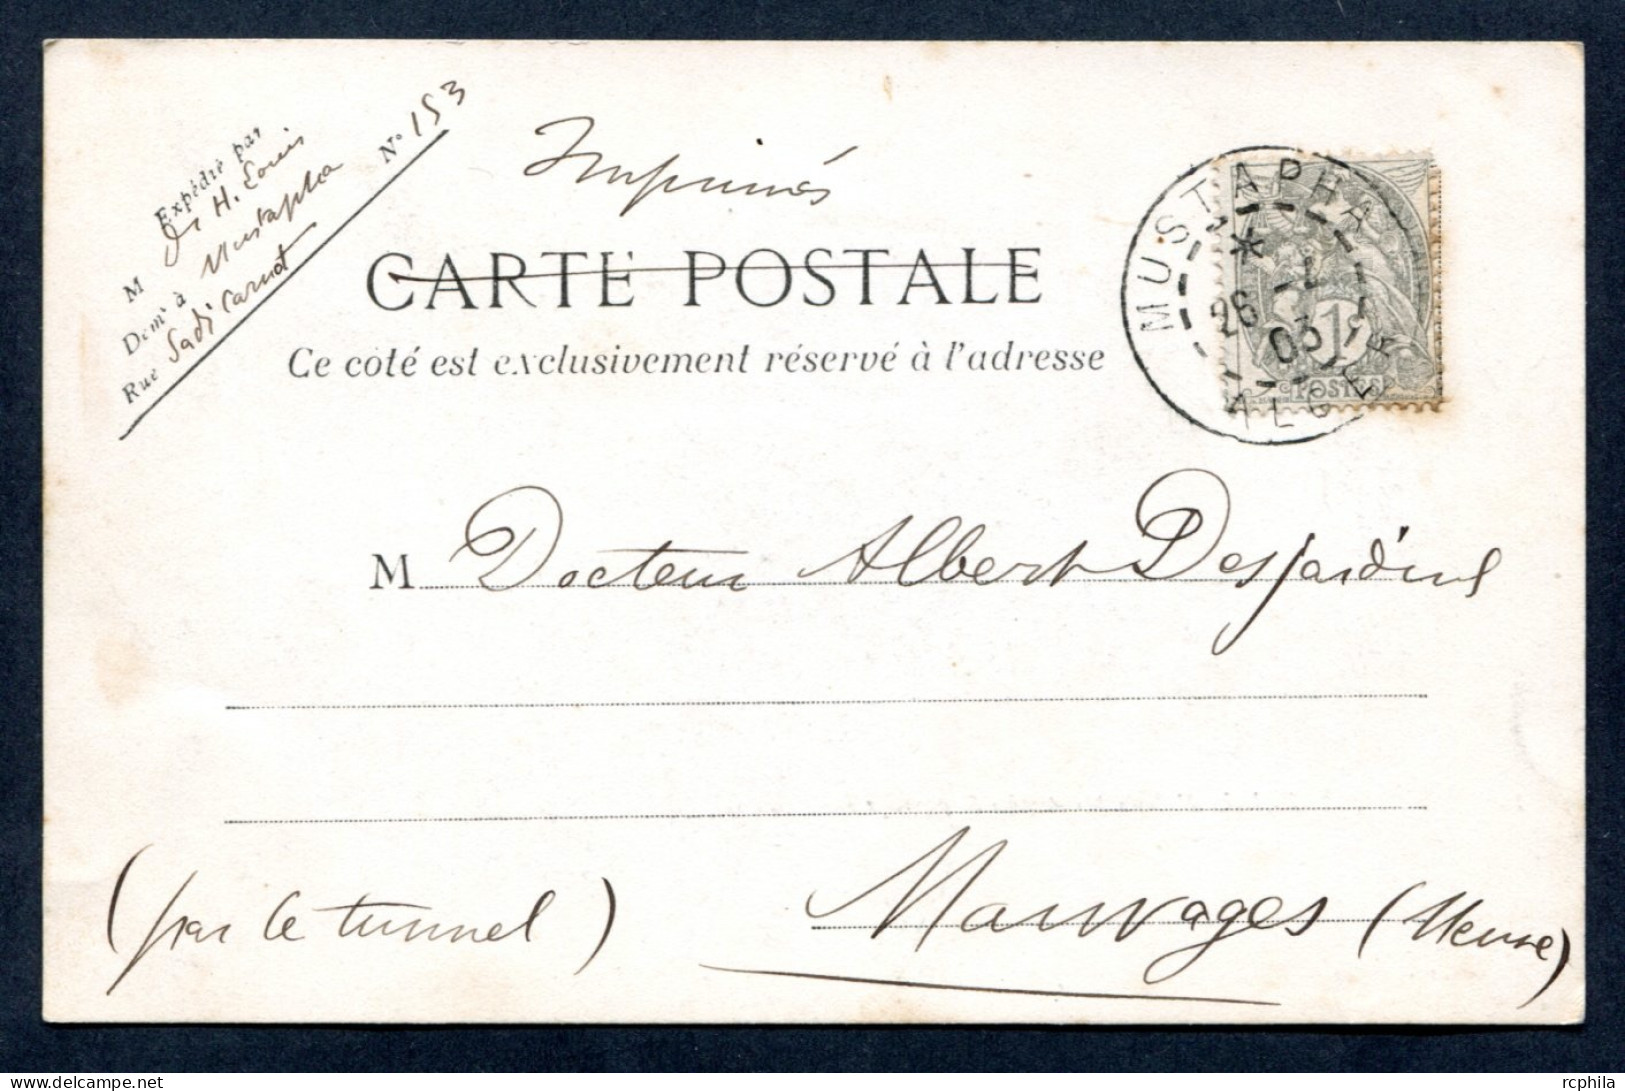 Expédié par
M Dr H. Louis
Demt à Mustapha
Rue Sadi Carnot No 153
Imprimés
CARTE POSTALE
Ce côté est exclusivement réservé à l'adresse
MUSTAPHA
26 -1
03
ALGER
1
POSTES
M Docteur Albert Desjardins
Mauvages (Meuse)
(par le tunnel)
rcphila
delcampe.net